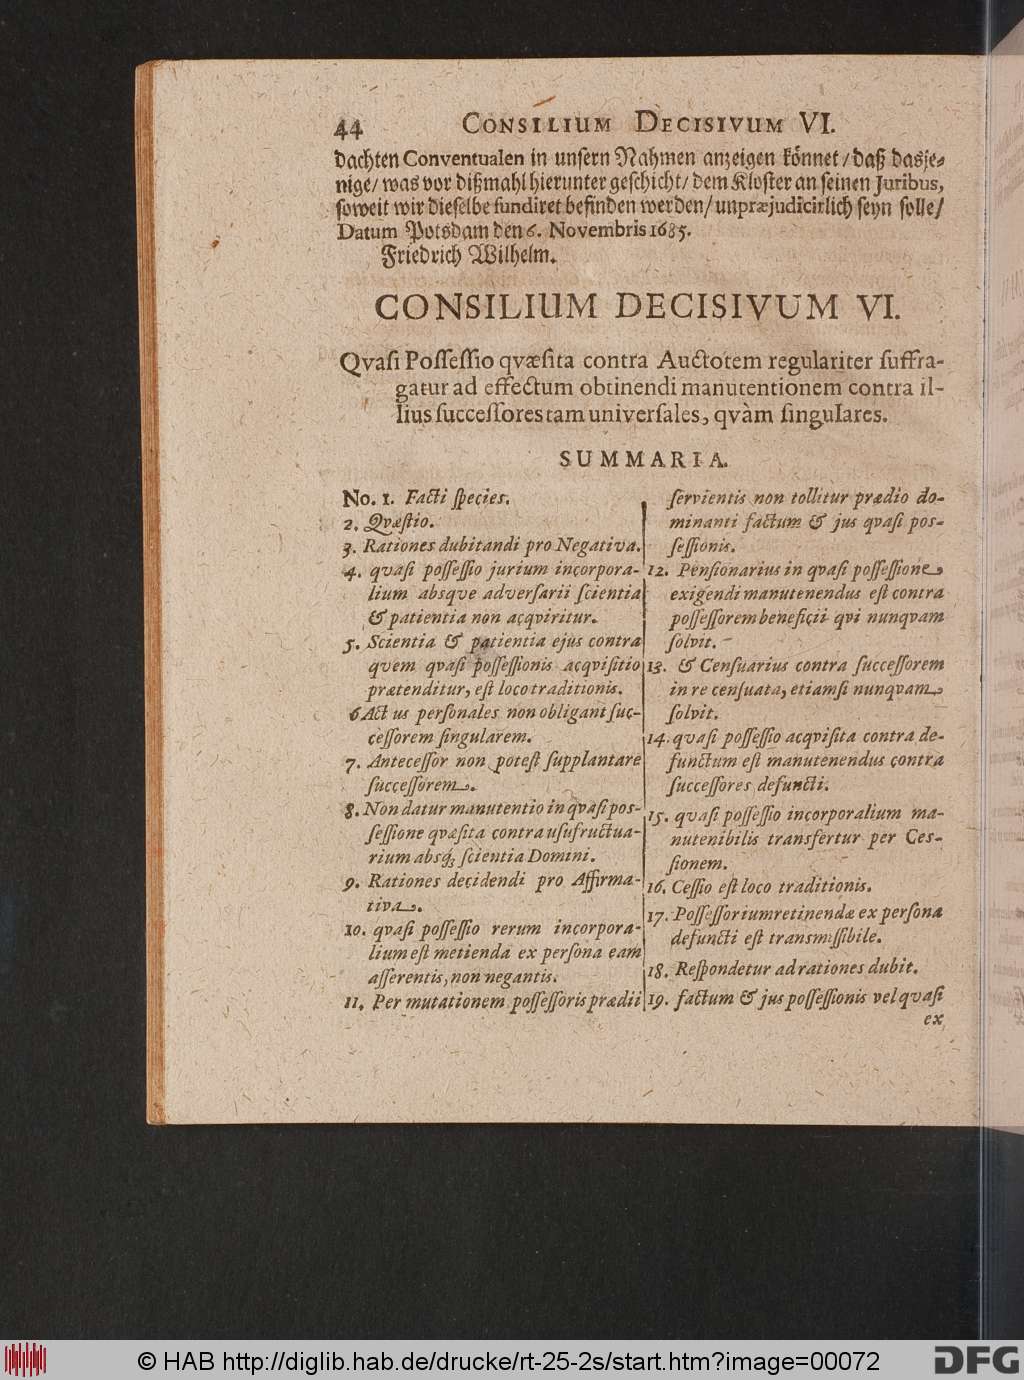 44 CONSILIUM DECISIVUM VI.
dachten Conventualen in unsern Nahmen anzeigen könnet/ daß dasje-
nige/ was vor dißmahl hierunter geschicht/ dem Kloster an seinen Juribus,
soweit wir dieselbe fundiret befinden werden/ unpræjudicirlich seyn solle/
Datum Potsdam den 6. Novembris 1685.
Friedrich Wilhelm.
CONSILIUM DECISIVUM VI.
Qvasi Possessio qvæsita contra Auctotem regulariter suffra-
gatur ad effectum obtinendi manutentionem contra il-
lius successores tam universales, qvàm singulares.
SUMMARIA.
No. 1. Facti species.
2. Qvæstio.
3. Rationes dubitandi pro Negativa.
4. qvasi possessio jurium incorpora-
lium absqve adversarii scientia
& patientia non acqviritur.
5. Scientia & patientia ejus contra
qvem qvasi possessionis acqvisitio
prætenditur, est loco traditionis.
6 Act us personales non obligant suc-
cessorem singularem.
7. Antecessor non potest supplantare
successorem.
8. Non datur manutentio in qvasi pos-
sessione qvæsita contra usufructua-
rium absq; scientia Domini.
9. Rationes decidendi pro Affirma-
tiva.
10. qvasi possessio rerum incorpora-
lium est metienda ex persona eam
asserentis, non negantis.
11. Per mutationem possessoris prædii
servientis non tollitur prædio do-
minanti factum & jus qvasi pos-
sessionis.
12. Pensionarius in qvasi possessione
exigendi manutenendus est contra
possessorem beneficii qvi nunqvam
solvit.
13. & Censuarius contra successorem
in re censuata, etiamsi nunqvam
solvit.
14. qvasi possessio acqvisita contra de-
functum est manutenendus contra
successores defuncti.
15. qvasi possessio incorporalium ma-
nutenibilis transfertur per Ces-
sionem.
16. Cessio est loco traditionis.
17. Possessorium retinendæ ex persona
defuncti est transmissibile.
18. Respondetur ad rationes dubit.
19. factum & jus possessionis vel qvasi
ex
© HAB http://diglib.hab.de/drucke/rt-25-2s/start.htm?image=00072
DFG